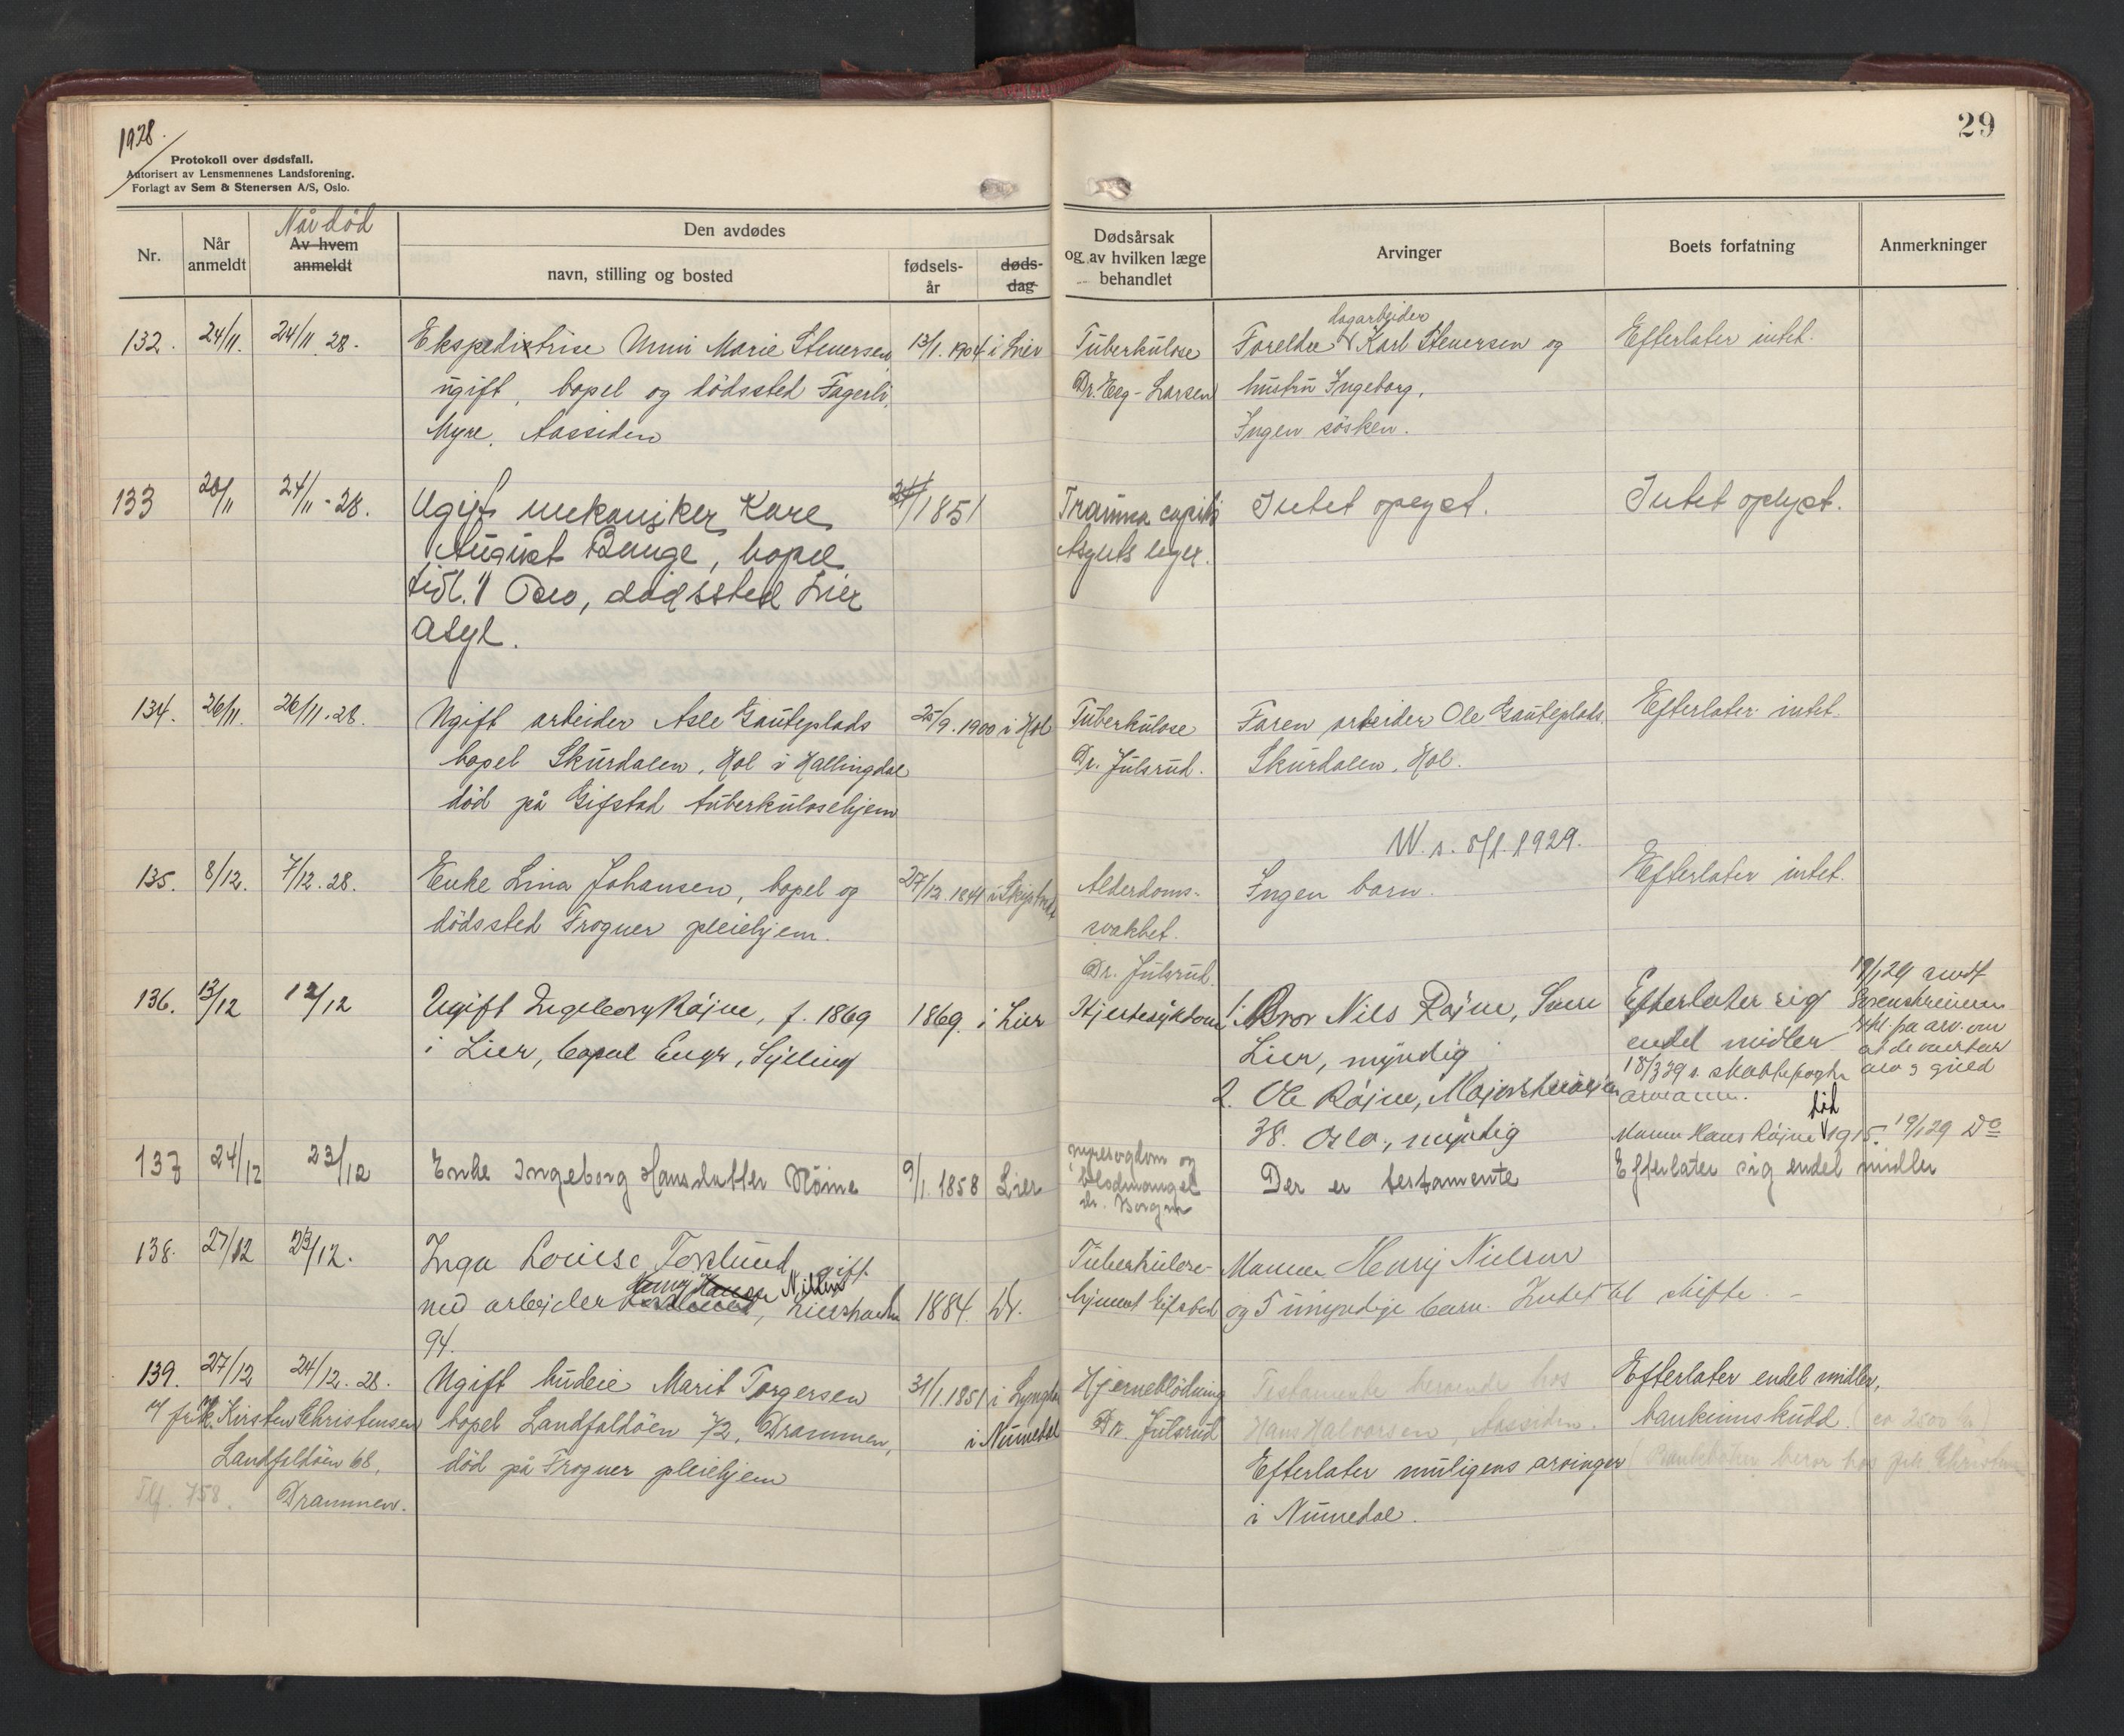 1928.
Protokoll over dødsfall.
Autorisert av Lensmennenes Landsforening.
Forlagt av Sem & Stenersen A/S, Oslo.
29
Nr.
Når anmeldt
Når död
Av hvem anmeldt
Den avdødes
navn, stilling og bosted
fødsels-
år
døds-
dag
Dødsårsak
og av hvilken læge
behandlet
Arvinger
Boets forfatning
Anmerkninger
132. 24/11. 24/11 28. Ekspeditrise Unni Marie Stenersen, 13/1. 1904 i Lier Tuberkulose Foreldre dagarbeider Karl Stenersen og Efterlater intet.
ugift, bopel og dödssted Fagerli, Dr. Eeg-Larsen hustru Ingeborg.
Myre, Aassiden Ingen sösken.
133 26/11 24/11 - 28. Ugift mekaniker Kare 24/ 1851 Trauma capitis Intet oplyst. Intet oplyst.
August Bauge, bopel Asylets leger.
tidl. i Oslo, dødssted Lier
Asyl.
134. 26/11. 26/11.28. Ugift arbeider Asle Gauteplads 25/9. 1900 i Hol Tuberkulose Faren arbeider Ole Gauteplads Efterlater intet.
bopel Skurdalen, Hol i Hallingdal Dr. Julsrud. Skurdalen, Hol.
död på Gifstad tuberkulosehjem
W. s. 8/1. 1929.
135. 8/12. 7/12.28. Enke Lina Johansen, bopel og 27/12. 1841 i Skiptvedt Alderdoms- Ingen barn. Efterlater intet.
dödssted Frogner pleiehjem. svakhet.
Dr. Julsrud.
136. 13/12 12/12 Ugift Ingeborg Röine, f. 1869 1869. i Lier Hjertesykdom 1. Bror Nils Röine, Lier Efterlater sig 19/1 29
i Lier, bopæl Enger, Sylling Lier, myndig endel midler
18/3 29 s. skattefogden
2. Ole Röine, Majorstuveien
38. Oslo, myndig Mannen Hans Röine död 1915. 19/1 29 Do
137 24/12 23/12 Enke Ingeborg Hansdatter Röine 9/1. 1858 Lier nyresygdom og Der er testamente Efterlater sig endel midler
blodmangel
dr. Borgen
138. 27/12 23/12. Inga Louise Foslund, gift Tuberkulose- Mannen Henry Nielsen
med arbejder Henry Nilsen, Lierstranden 1884. Dr. hjemmet Gifstad og 5 umyndige barn. Intet til skifte. -
94.
139. 27/12 24/12.28. Ugift budeie Marit Torgersen 31/1.1851 i Lyngdal Hjerneblödning Testamente beroende hos Efterlater endel midler,
v/ frk. Kirsten Christensen bopel Landfaldöen 72, Drammen, i Numedal Dr. Julsrud Hans Halvorsen, Aassiden. bankinnskudd (ca 2500 kr)
Landfaldöen 68, död på Frogner pleiehjem Efterlater muligens arvinger (Bankboken beror hos frk. Christensen
Tlf. 758. Drammen. i Numedal.